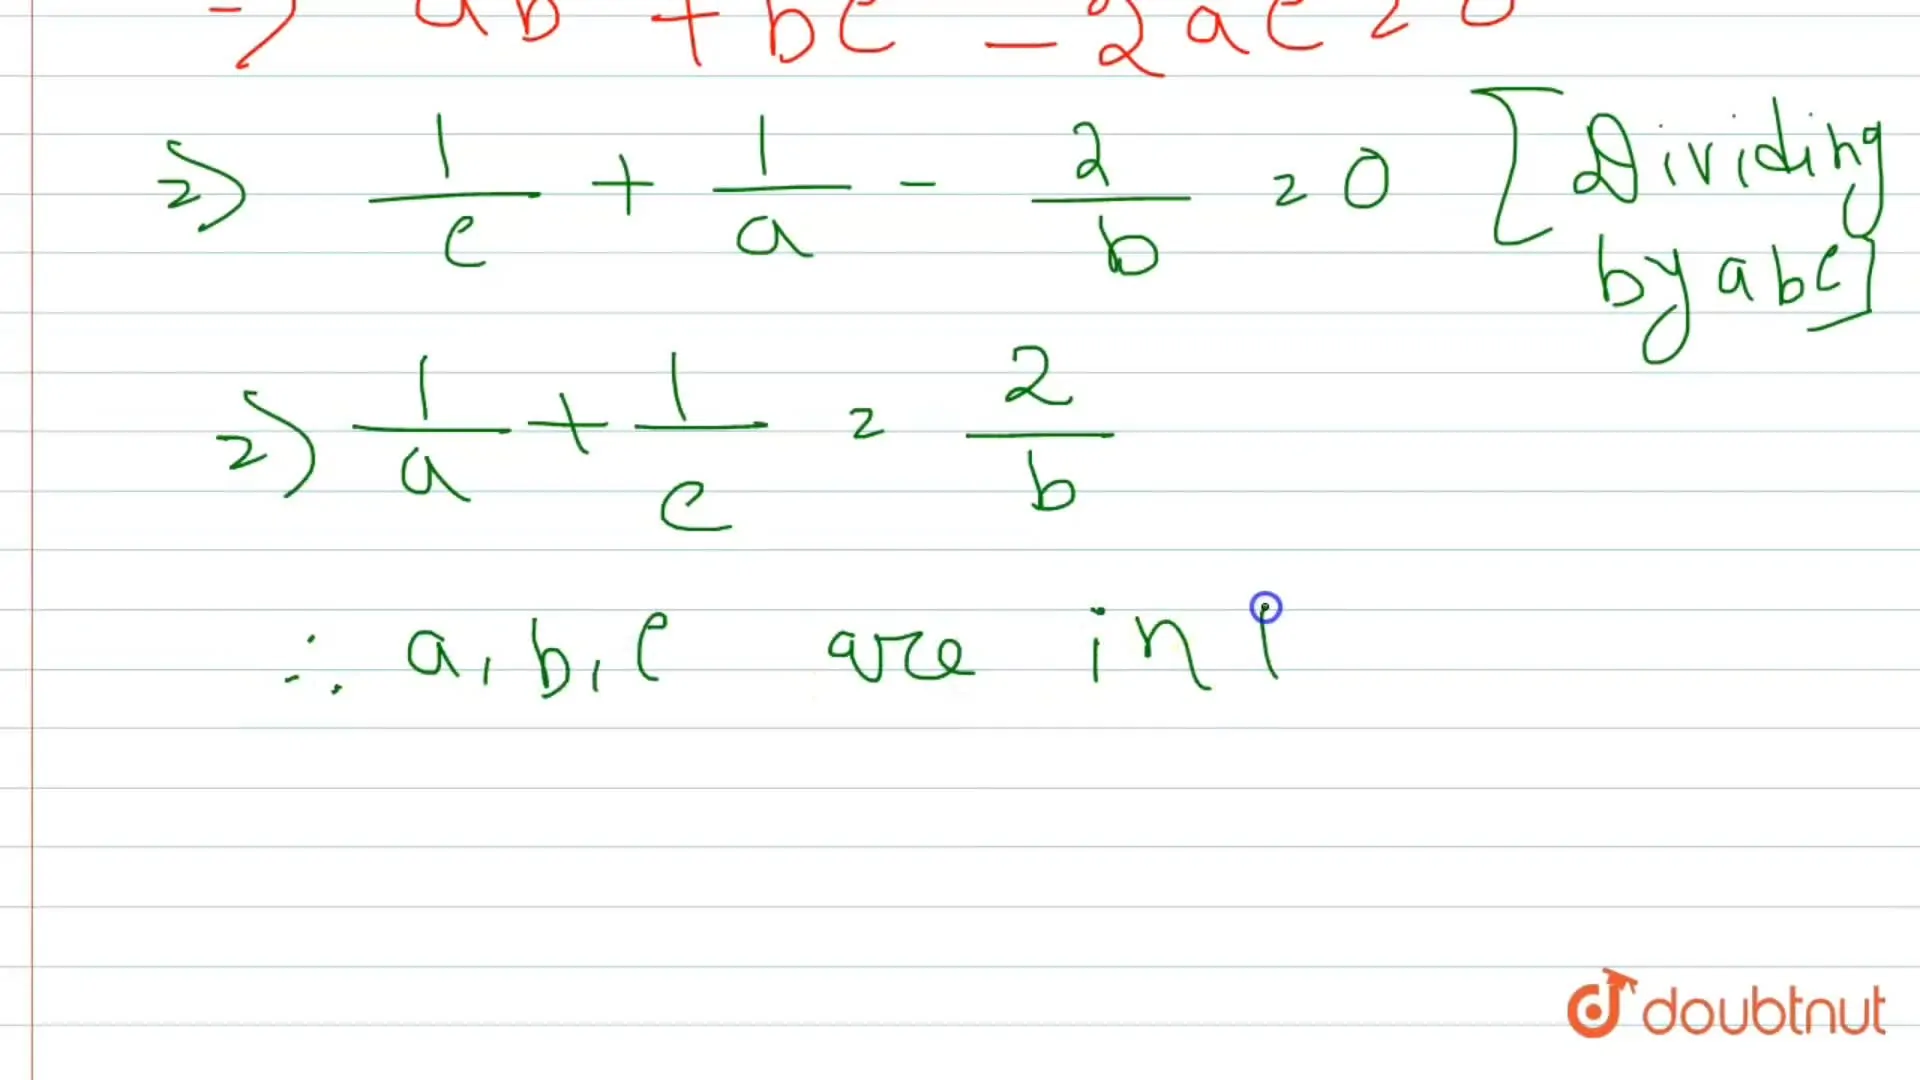 ⇒ ab + bc - 2ac = 0
⇒ 1/c + 1/a - 2/b = 0 [Dividing
by abc]
⇒ 1/a + 1/c = 2/b
∴ a, b, c are in
doubtnut